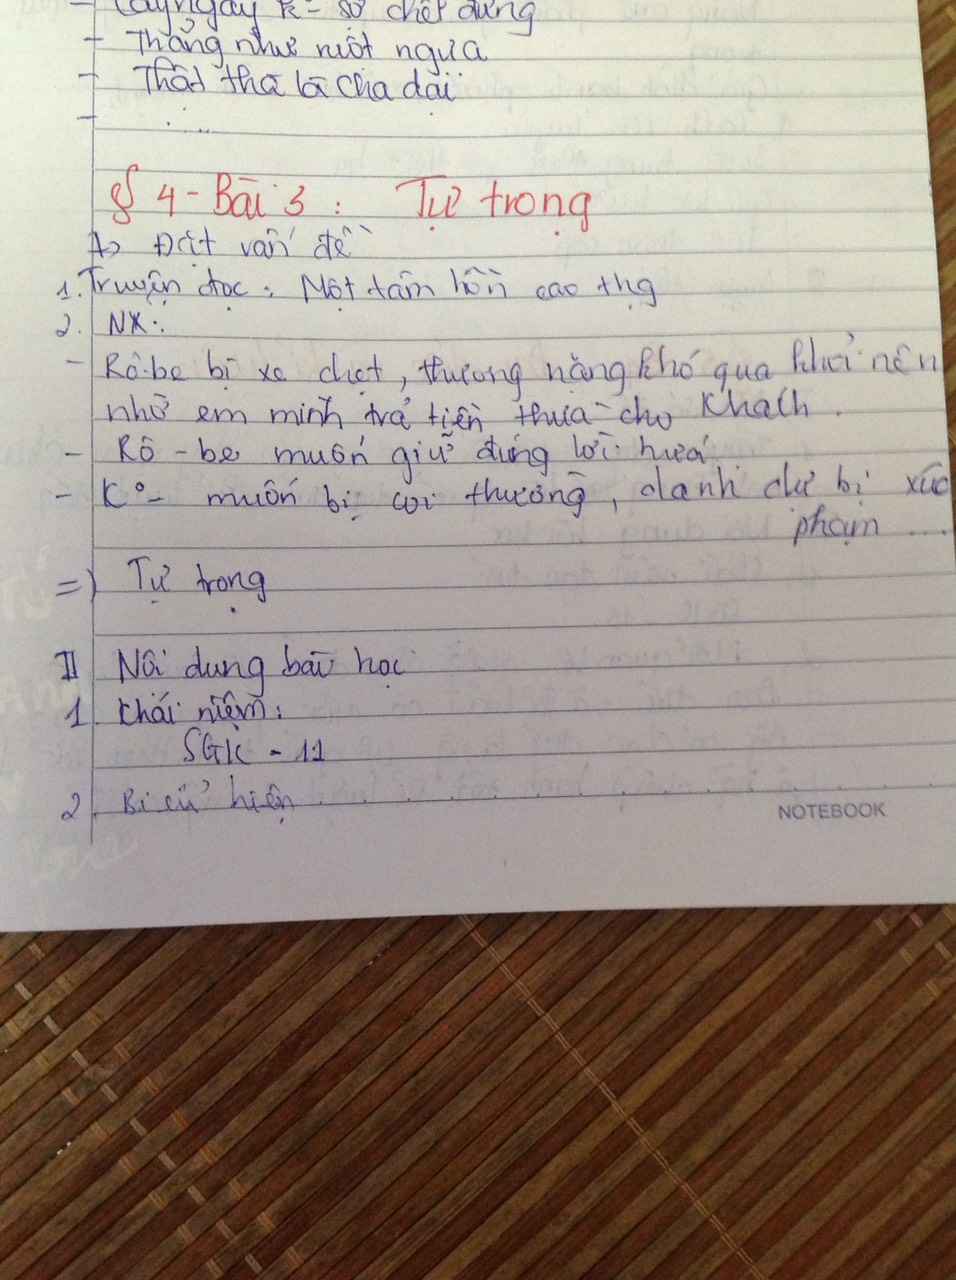 - Cây ngay k- sợ chết đứng
- Thẳng như ruột ngựa
- Thật thà là cha dại
- ....
§ 4 - Bài 3 : Tự trọng
A> Đặt vấn đề
1. Truyện đọc : Một tâm hồn cao thg
2. NX :
- Rô-be bị xe chẹt, thương nặng khó qua khỏi nên
nhờ em mình trả tiền thừa cho khách .
- Rô - be muốn giữ đúng lời hứa
- K°- muốn bị coi thường, danh dự bị xúc
phạm ...
=> Tự trọng
II Nội dung bài học
1. Khái niệm :
SGK - 11
2. Biểu hiện
NOTEBOOK